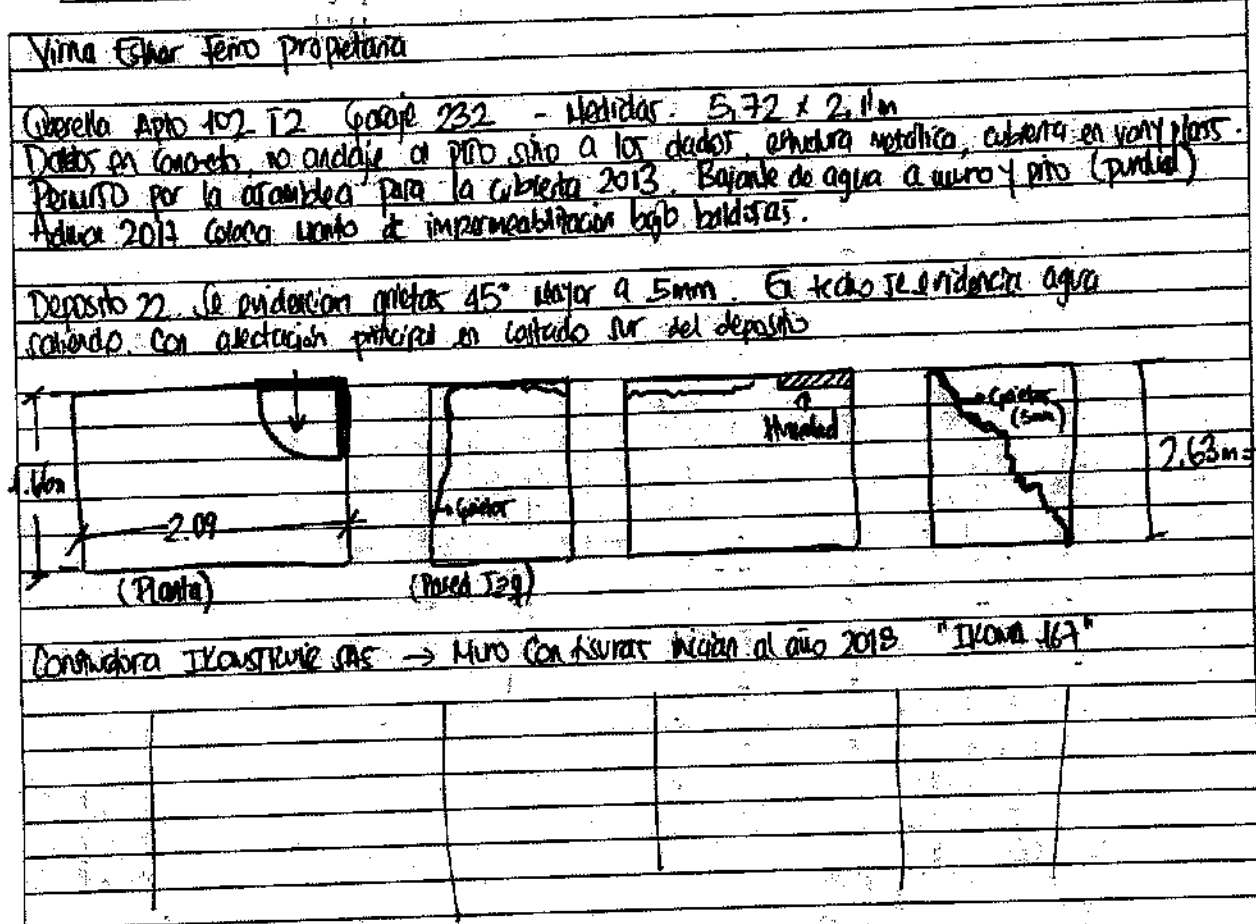 Virna Esthar Ferro propietaria
Cubierta Apto 102 T2 Garaje 232 - Medidas: 5,72 x 2,11m
Dados en concreto, no anclaje al piso sino a los dados, estructura metálica, cubierta en vony plass.
Permiso por la asamblea para la cubierta 2013. Bajante de agua a muro y piso (pluvial)
Admon 2017 coloca manto de impermeabilización bajo baldosas.
Deposito 22. Se evidencian grietas 45° mayor a 5mm. En techo se evidencia agua
saliendo. Con afectación principal en costado sur del deposito
Grietas
(5mm)
Humedad
2.63m
Grietas
2.09
(Planta)
(Pared Izq)
Constructora IKONSTRUYE SAS → Muro Con fisuras inician al año 2018 "IKONA 167"